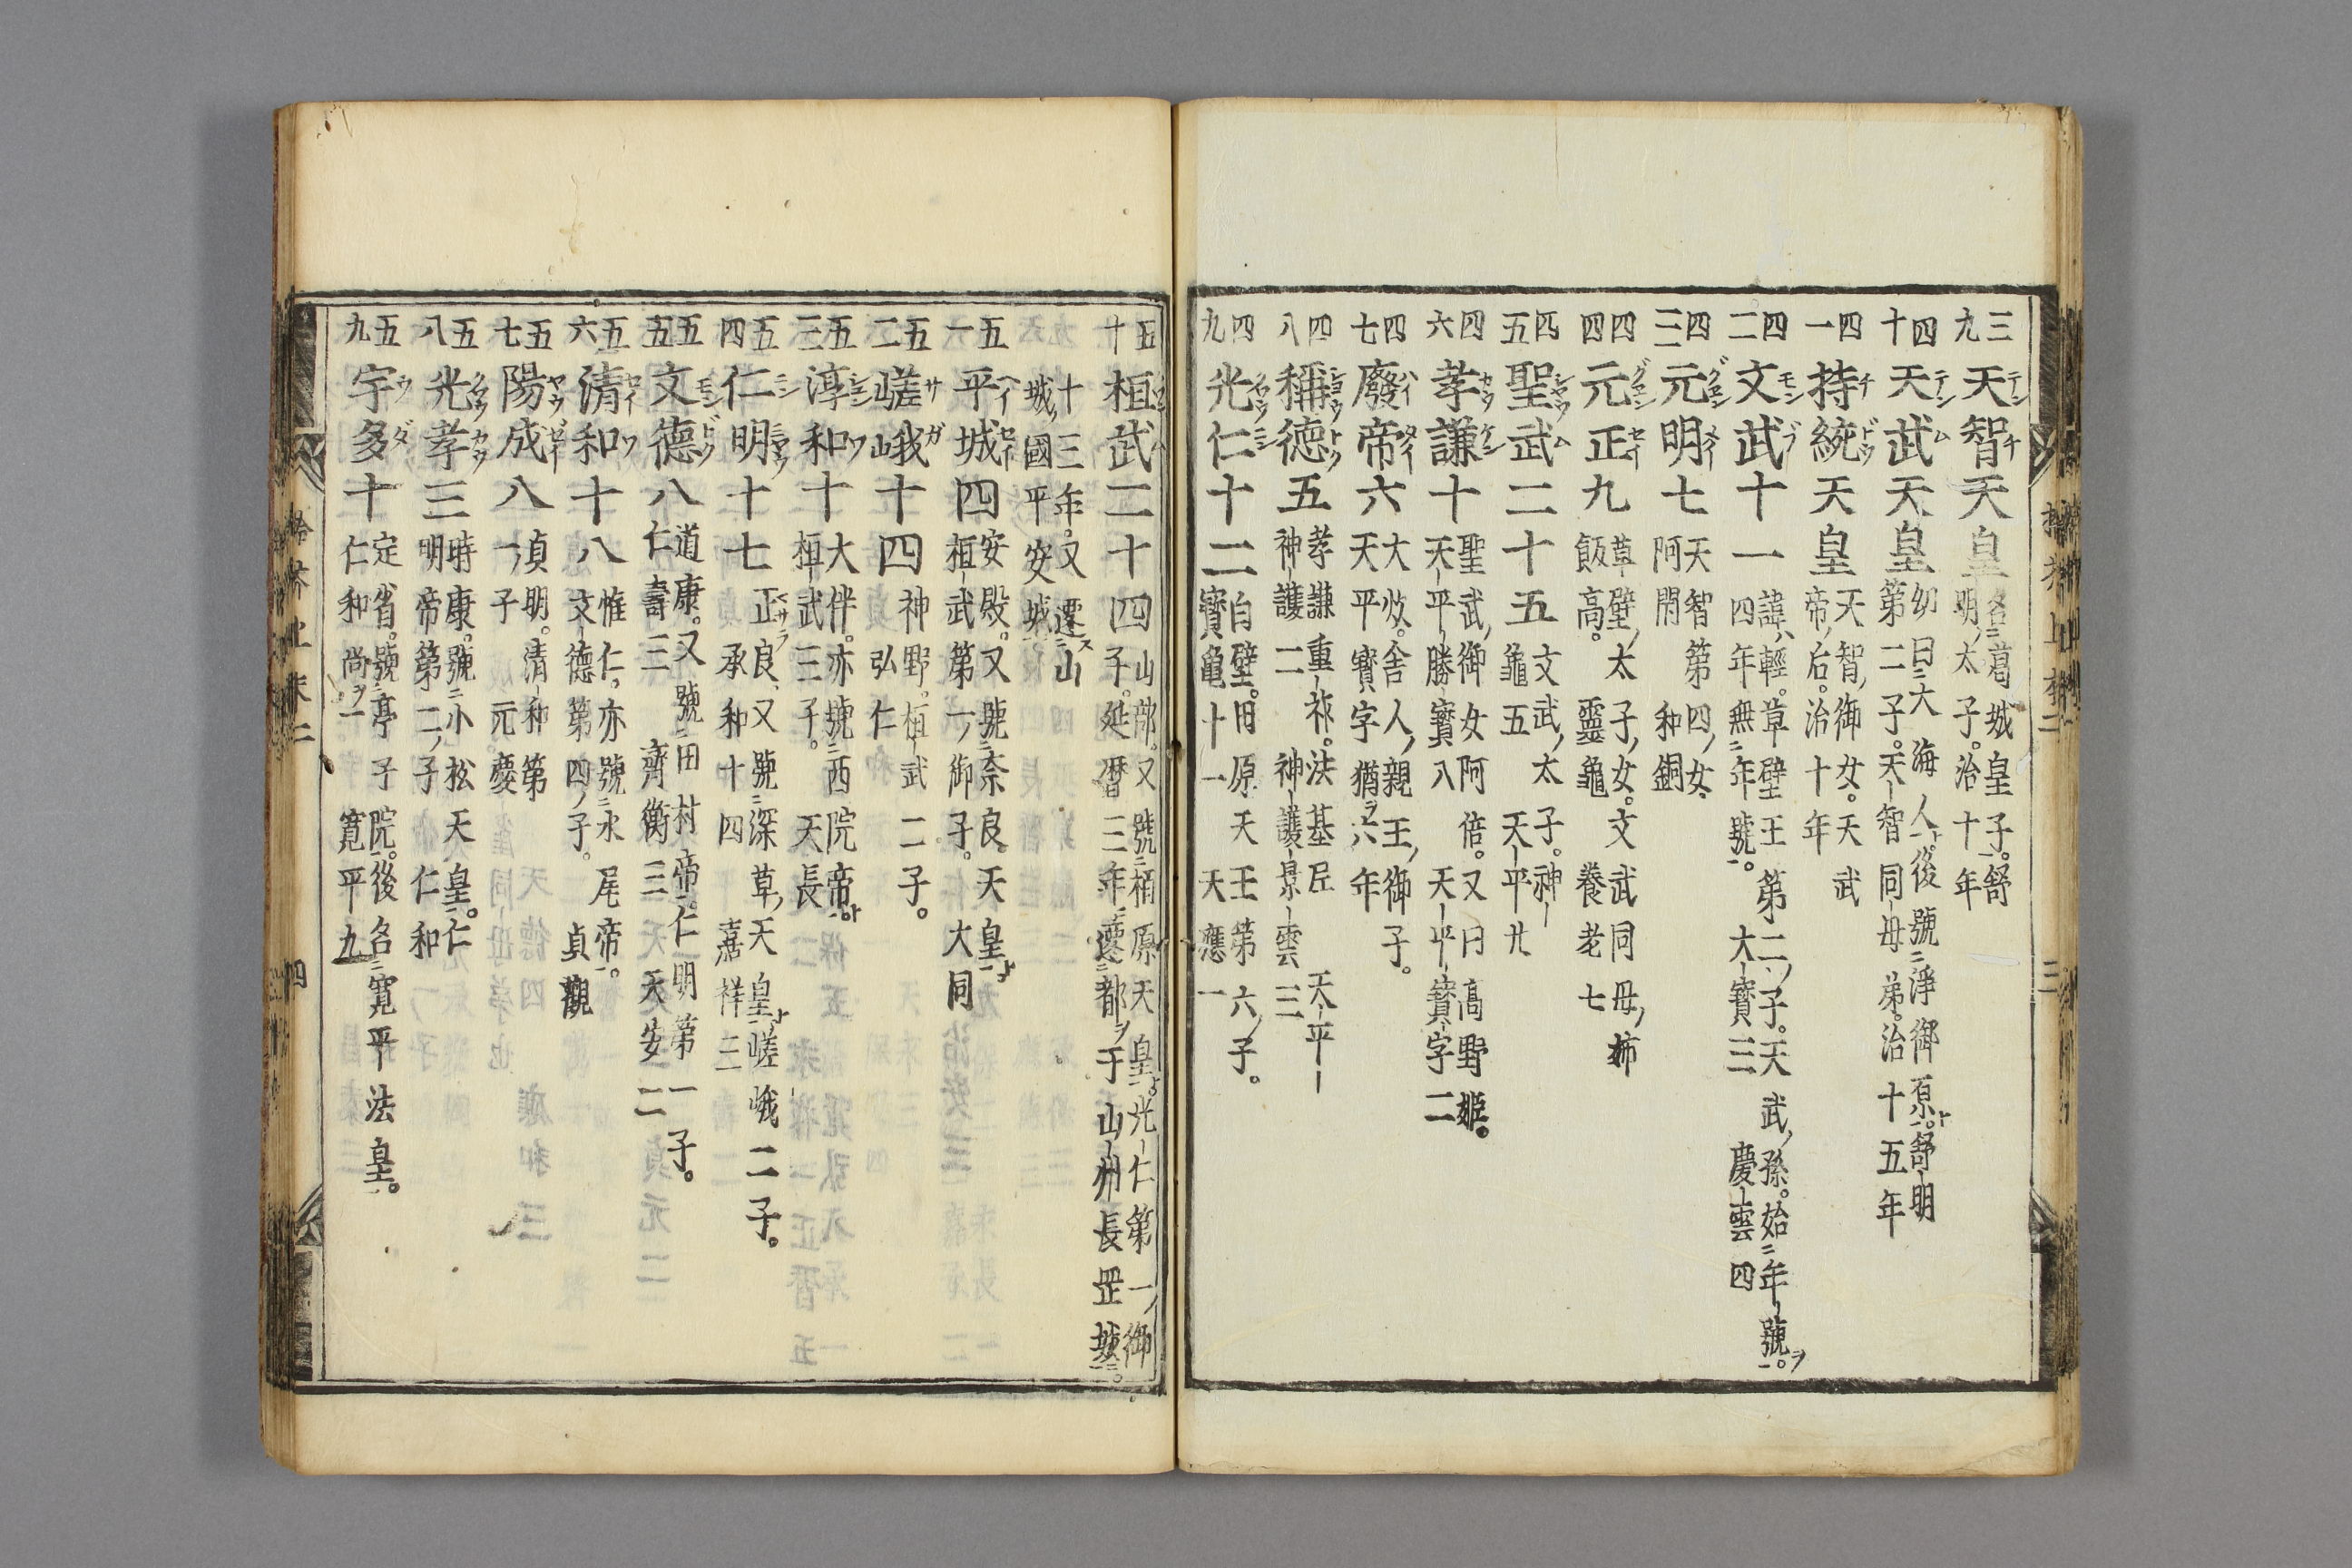 三九 天智天皇 名葛城皇子。舒
明太子。治十年
四十 天武天皇 幼曰大海人。後號淨御原。舒明
第二子。天智同母弟。治十五年
四一 持統天皇 天智御女。天武
帝后。治十年
四二 文武十一 諱輕。草壁王第二子。天武孫。始年號。
四年無年號。大寶三 慶雲四
四三 元明七 天智第四女
阿閇 和銅
四四 元正九 草壁太子女。文武同母姉
飯高。靈龜 養老七
四五 聖武二十五 文武太子。神
龜五 天平廿
四六 孝謙十 聖武御女阿倍。又曰高野姬。
天平勝寶八 天平寶字二
四七 廢帝六 大炊。舎人親王御子。
天平寶字猶六年
四八 稱德五 孝謙重祚。法基尼 天平
神護二 神護景雲三
四九 光仁十二 白壁。田原天王第六子。
寶龜十一 天應一
三
五十 桓武二十四 山部。又號栢原天皇。光仁第一御
子。延暦三年遷都于山州長岡城。
十三年。又遷山
城國平安城
五一 平城四 安殿。又號奈良天皇
桓武第一御子。大同
五二 嵯峨十四 神野。桓武二子。
弘仁
五三 淳和十 大伴。亦號西院帝。
桓武三子。天長
五四 仁明十七 正良。又號深草天皇嵯峨二子。
承和十四 嘉祥三
五五 文德八 道康。又號田村帝。仁明第一子。
仁壽三 齊衡三 天安二
五六 清和十八 惟仁。亦號水尾帝。
文德第四子。貞觀
五七 陽成八 貞明。清和第
一子 元慶
五八 光孝三 時康。號小松天皇。仁
明帝第二子 仁和
五九 宇多十 定省。號亭子院。後名寛平法皇。
仁和尚一 寛平九
四